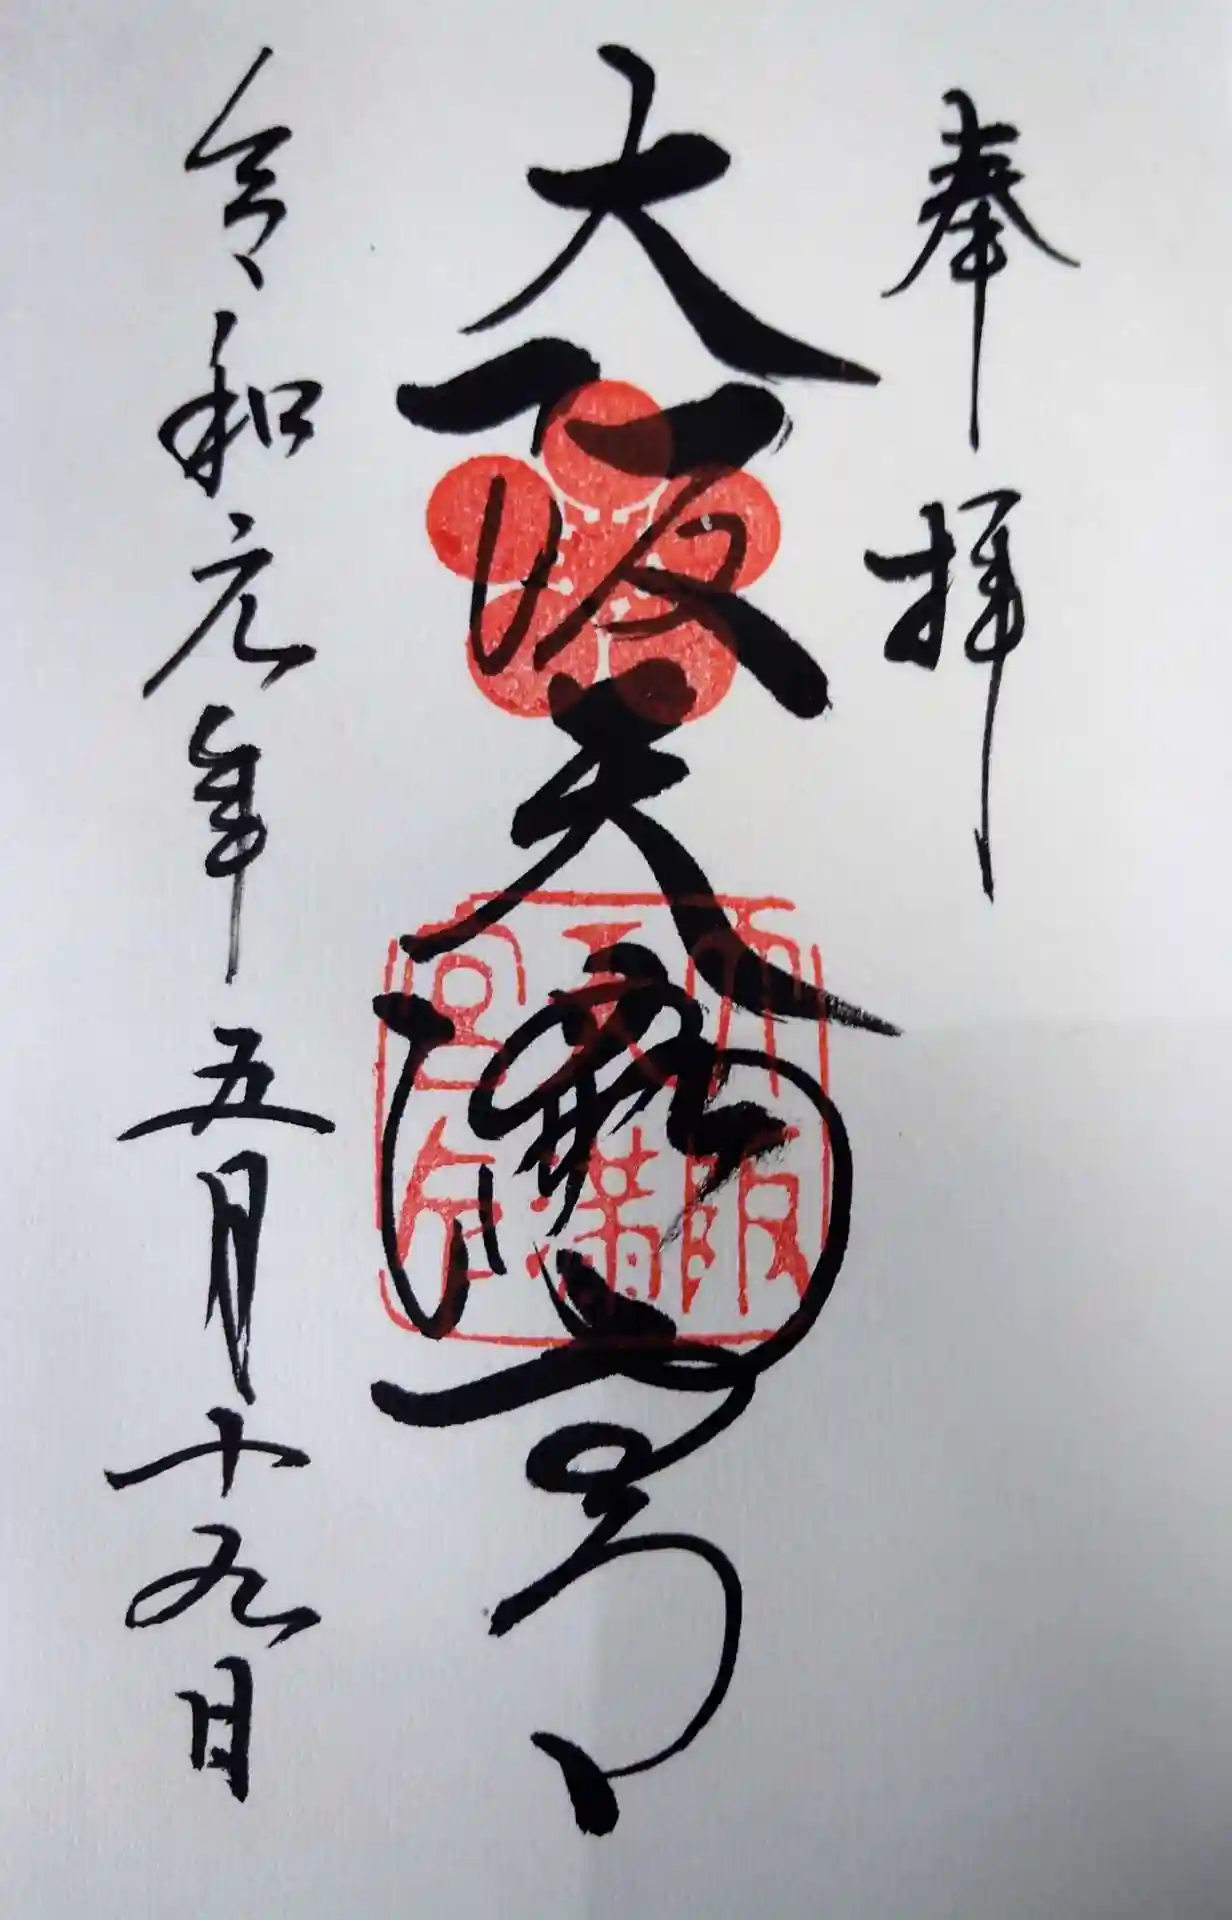 奉拝
大阪天満宮
大阪天満宮印
令和元年五月十九日